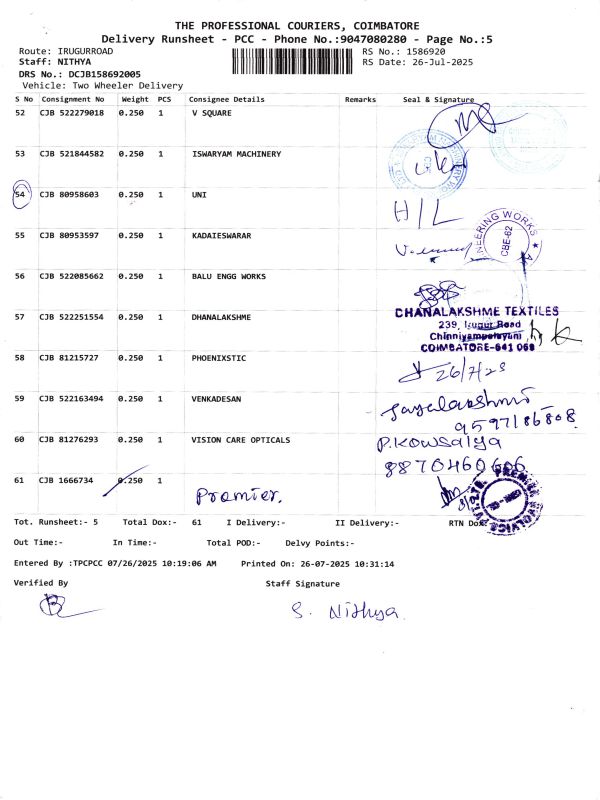 THE PROFESSIONAL COURIERS, COIMBATORE
Delivery Runsheet - PCC - Phone No.:9047080280 - Page No.:5
Route: IRUGURROAD
RS No.: 1586920
Staff: NITHYA
RS Date: 26-Jul-2025
DRS No.: DCJB158692005
Vehicle: Two Wheeler Delivery
S No Consignment No Weight PCS Consignee Details Remarks Seal & Signature
52 CJB 522279018 0.250 1 V SQUARE
53 CJB 521844582 0.250 1 ISWARYAM MACHINERY
54 CJB 80958603 0.250 1 UNI H/L
55 CJB 80953597 0.250 1 KADAIESWARAR
NEERING WORKS
CBE-62
56 CJB 522085662 0.250 1 BALU ENGG WORKS
57 CJB 522251554 0.250 1 DHANALAKSHME
DHANALAKSHME TEXTILES
239, Irugur Road
Chinniyampalayam
COIMBATORE-641 062
58 CJB 81215727 0.250 1 PHOENIXSTIC
26/7/25
59 CJB 522163494 0.250 1 VENKADESAN
Jayalakshmi
9597186808.
60 CJB 81276293 0.250 1 VISION CARE OPTICALS
P.Kowsalya
8870460606
61 CJB 1666734 0.250 1
Premier.
Tot. Runsheet:- 5 Total Dox:- 61 I Delivery:- II Delivery:- RTN Dox
Out Time:- In Time:- Total POD:- Delvy Points:-
Entered By :TPCPCC 07/26/2025 10:19:06 AM Printed On: 26-07-2025 10:31:14
Verified By Staff Signature
S. Nithya.